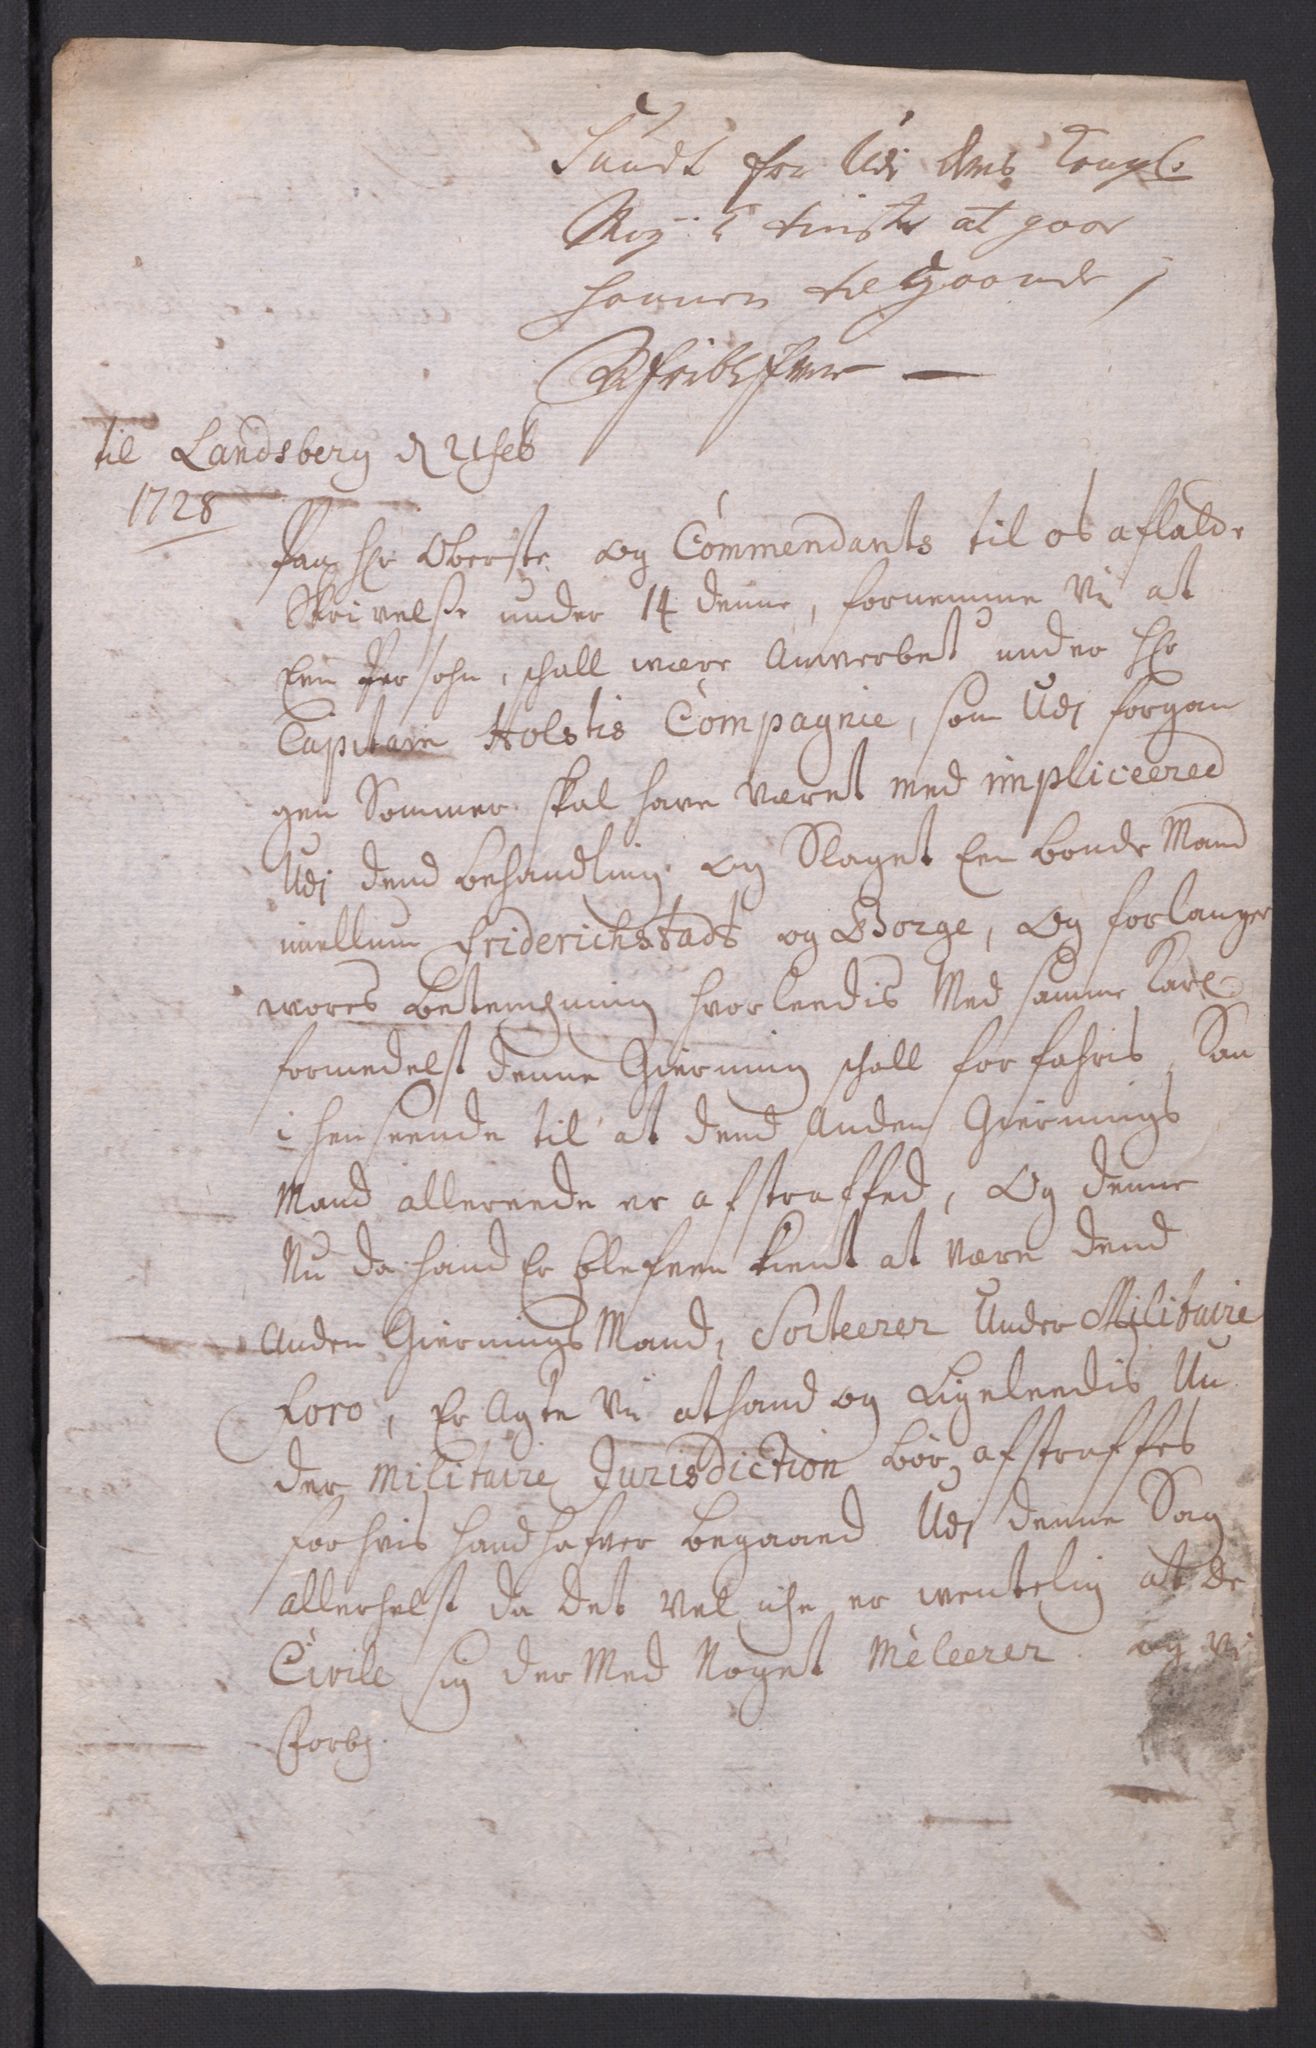 Sandt for Udi hans Kongl.
May: tt tieniste at gaae
hannem til Haande,
til Landsberg d 21 feb
1728
Paa Hr Oberste og Commendants til os aflatde
Skrivelse under 14 denne, fornemme Vi at
Een Persohn, schall være Anverbet under Hr
Capitain Holstis Compagnie, som Udi forgan
gen Sommer skal have været med impliceered
Udj dend behandling og Slaget Een bonde Mand
mellum Friderichstads og Borge, og forlanger
wores betenchning hvorleedis Med samme Karl
formedelst denne Gierning schall forfahris, Saa
i henseende til at dend Anden Giernings
Mand allereede er afstraffed, og denne
Nu da hand Er blefven kient at være dend
Anden Giernings Mand, Sorteerer Under Militaire
Foro, Er Agte Vi at hand og Ligeleedis Un
der Militaire Jurisdiction bör afstraffes
for hvis hand hafver begaaed Udj denne Sag
allerhelst da det Vel iche er wentelig at de
Civile sig der Med Noget Meleerer. og Vi
Forbl.